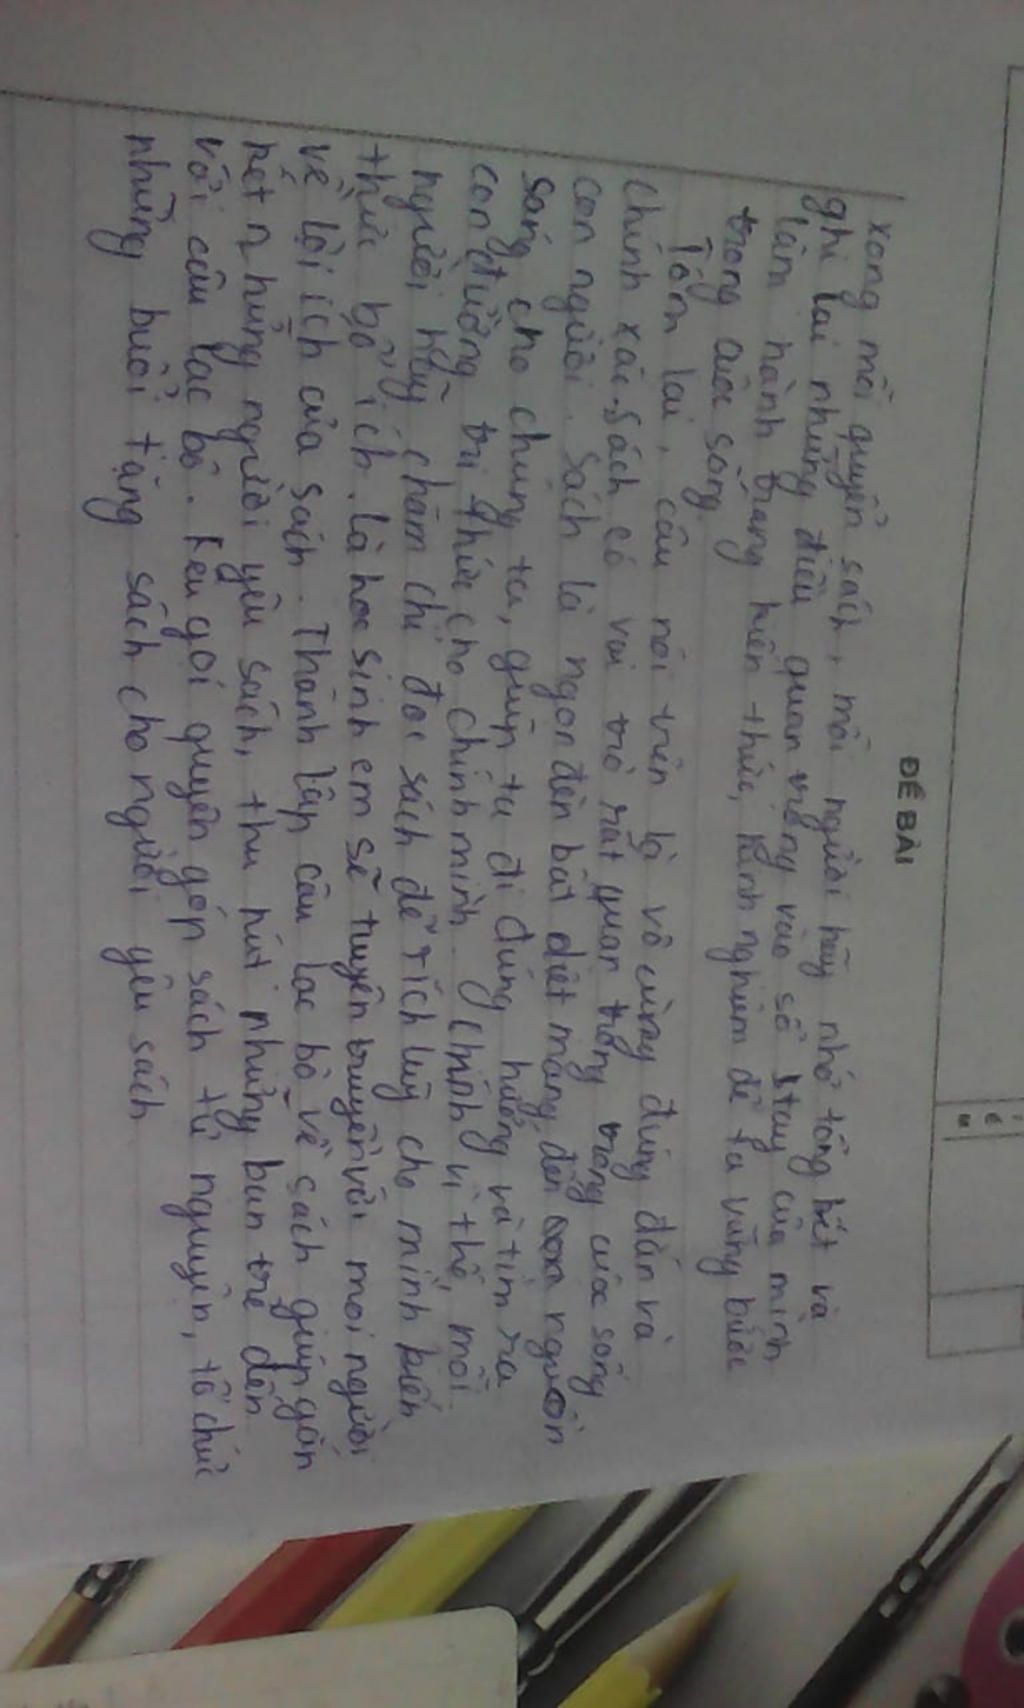 ĐỀ BÀI
xong mỗi quyển sách, mỗi người hãy nhớ tổng kết và
ghi lại những điều quan trọng vào sổ tay của mình
làm hành trang kiến thức, kinh nghiệm để ta vững bước
trong cuộc sống.
Tóm lại, câu nói trên là vô cùng đúng đắn và
chính xác. Sách có vai trò rất quan trọng trong cuộc sống
con người. Sách là ngọn đèn bất diệt mang đến nguồn
sáng cho chúng ta, giúp ta đi đúng hướng và tìm ra
con đường tri thức cho chính mình. Chính vì thế, mỗi
người hãy chăm chỉ đọc sách để tích luỹ cho mình kiến
thức bổ ích. Là học sinh em sẽ tuyên truyền với mọi người
về lợi ích của sách. Thành lập câu lạc bộ về sách giúp gắn
kết những người yêu sách, thu hút những bạn trẻ đến
với câu lạc bộ. Kêu gọi quyên góp sách tự nguyện, tổ chức
những buổi tặng sách cho người yêu sách